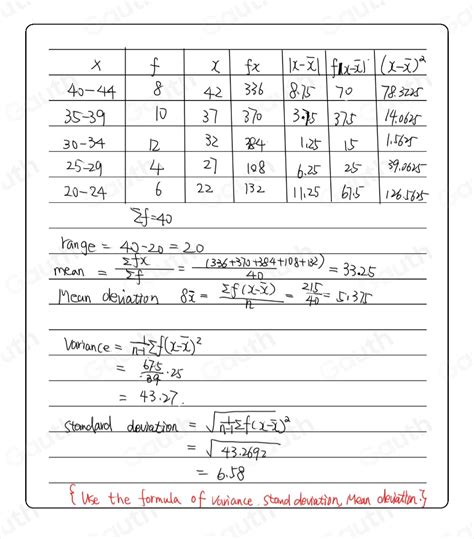 x f x fx |x-x̄| f|x-x̄| (x-x̄)²
40-44 8 42 336 8.75 70 78.3225
35-39 10 37 370 3.75 37.5 14.0625
30-34 12 32 384 1.25 15 1.5625
25-29 4 27 108 6.25 25 39.0625
20-24 6 22 132 11.25 67.5 126.5625
Σf=40
range = 40-20 = 20
mean = Σfx/Σf = (336+370+384+108+132)/40 = 33.25
Mean deviation δx̄ = Σf(x-x̄)/n = 215/40 = 5.375
Variance = 1/n-1 Σf(x-x̄)²
= .25
= 43.27.
standard deviation = √(1/n-1 Σf(x-x̄)²)
= √43.2692
= 6.58
{ Use the formula of variance, stand deviation, Mean deviation. }